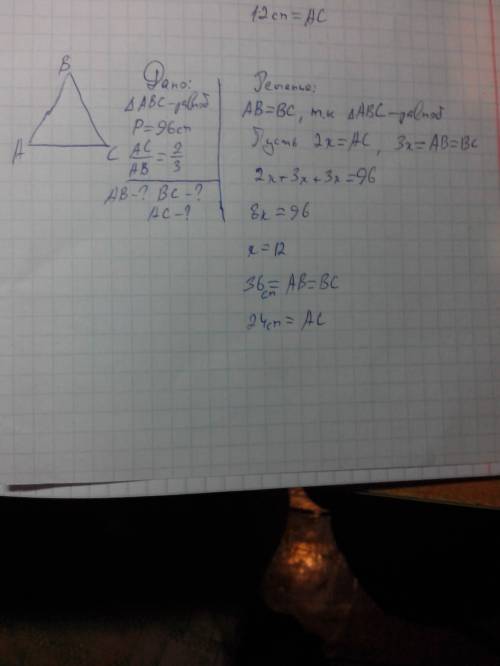 12см = AC
B
A
C
Дано:
△ABC-равноб
P=96см
AC/AB = 2/3
AB-? BC-?
AC-?
Решение:
AB=BC, т.к △ABC-равноб
Пусть 2x=AC, 3x=AB=BC
2x+3x+3x=96
8x=96
x=12
36см = AB=BC
24см = AC